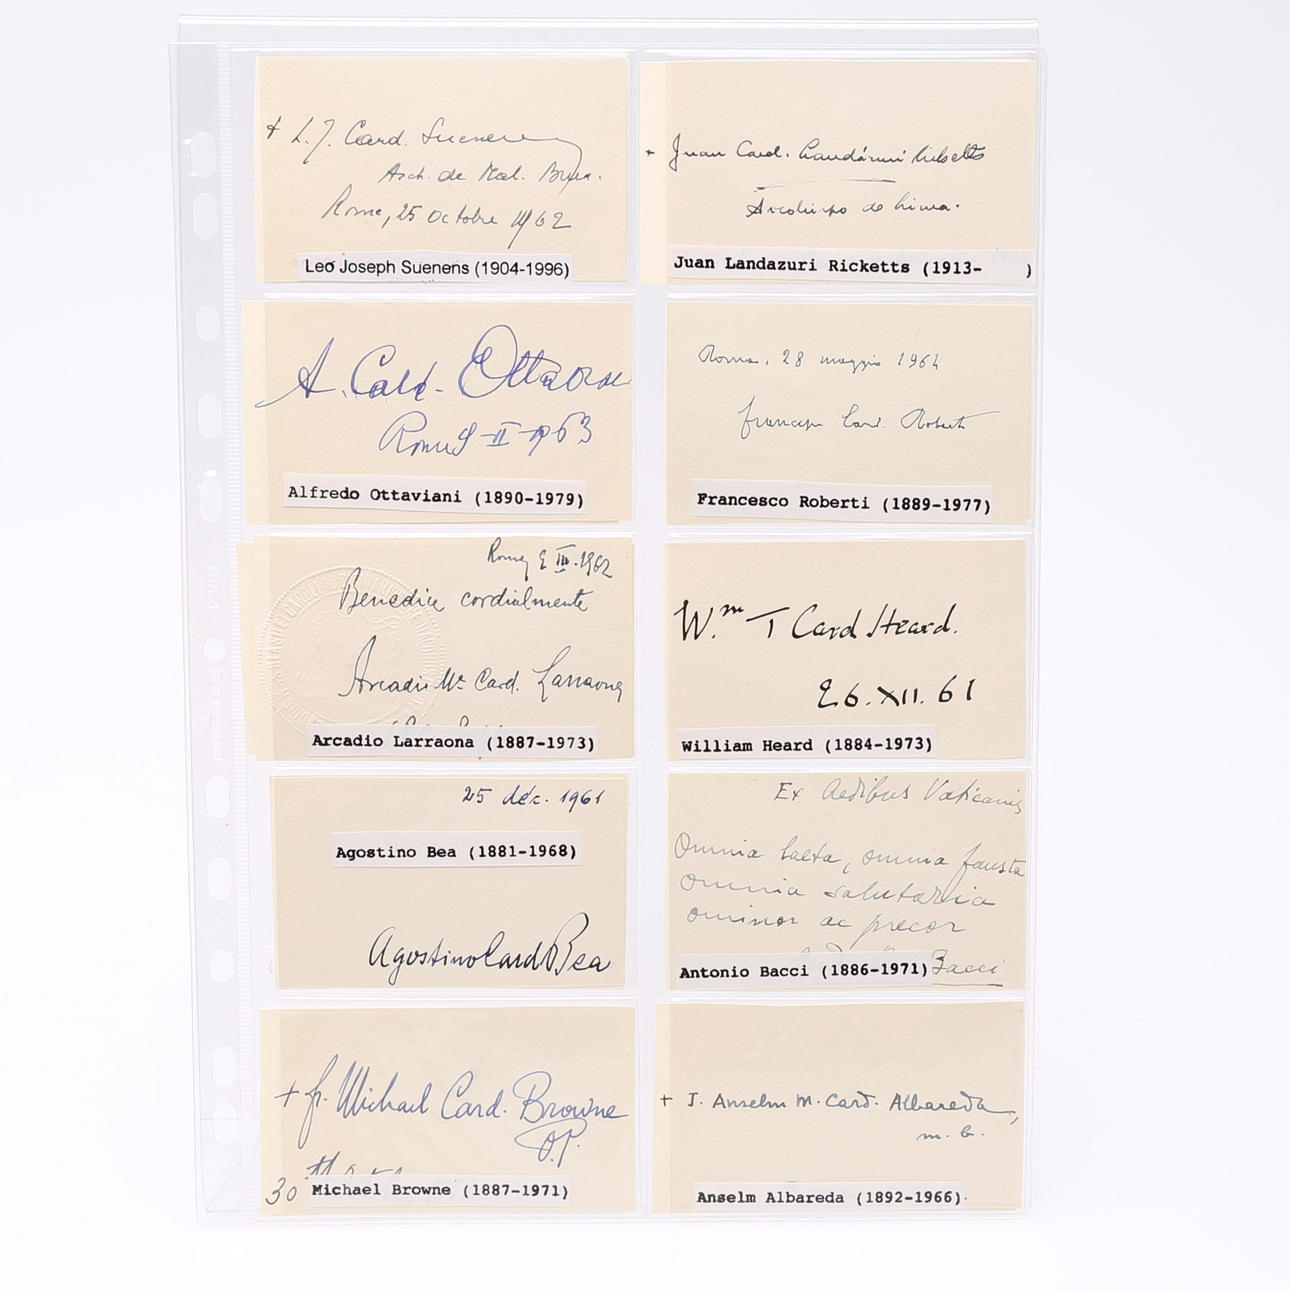 + L. J. Card. Suenens
Arch. de Mal. Brux.
Rome, 25 octobre 1962
Leo Joseph Suenens (1904-1996)
+ Juan Card. Landázuri Ricketts
Arzobispo de Lima.
Juan Landazuri Ricketts (1913- )
A. Card. Ottaviani
II-1963
Alfredo Ottaviani (1890-1979)
Roma, 28 maggio 1964
Francesco Card. Roberti
Francesco Roberti (1889-1977)
III.1962
Benedice cordialmente
Arcadio Mª Card. Larraona
Arcadio Larraona (1887-1973)
W.m T Card Heard.
26.XII.61
William Heard (1884-1973)
25 déc. 1961
Agostino Bea (1881-1968)
Agostino Card Bea
Ex Aedibus Vaticanis
Omnia laeta, omnia fausta
omnia salutaria
ominor ac precor
Bacci
Antonio Bacci (1886-1971)
+ fr. Michael Card. Browne
O.P.
30
Michael Browne (1887-1971)
+ J. Anselm M. Card. Albareda,
m. b.
Anselm Albareda (1892-1966)